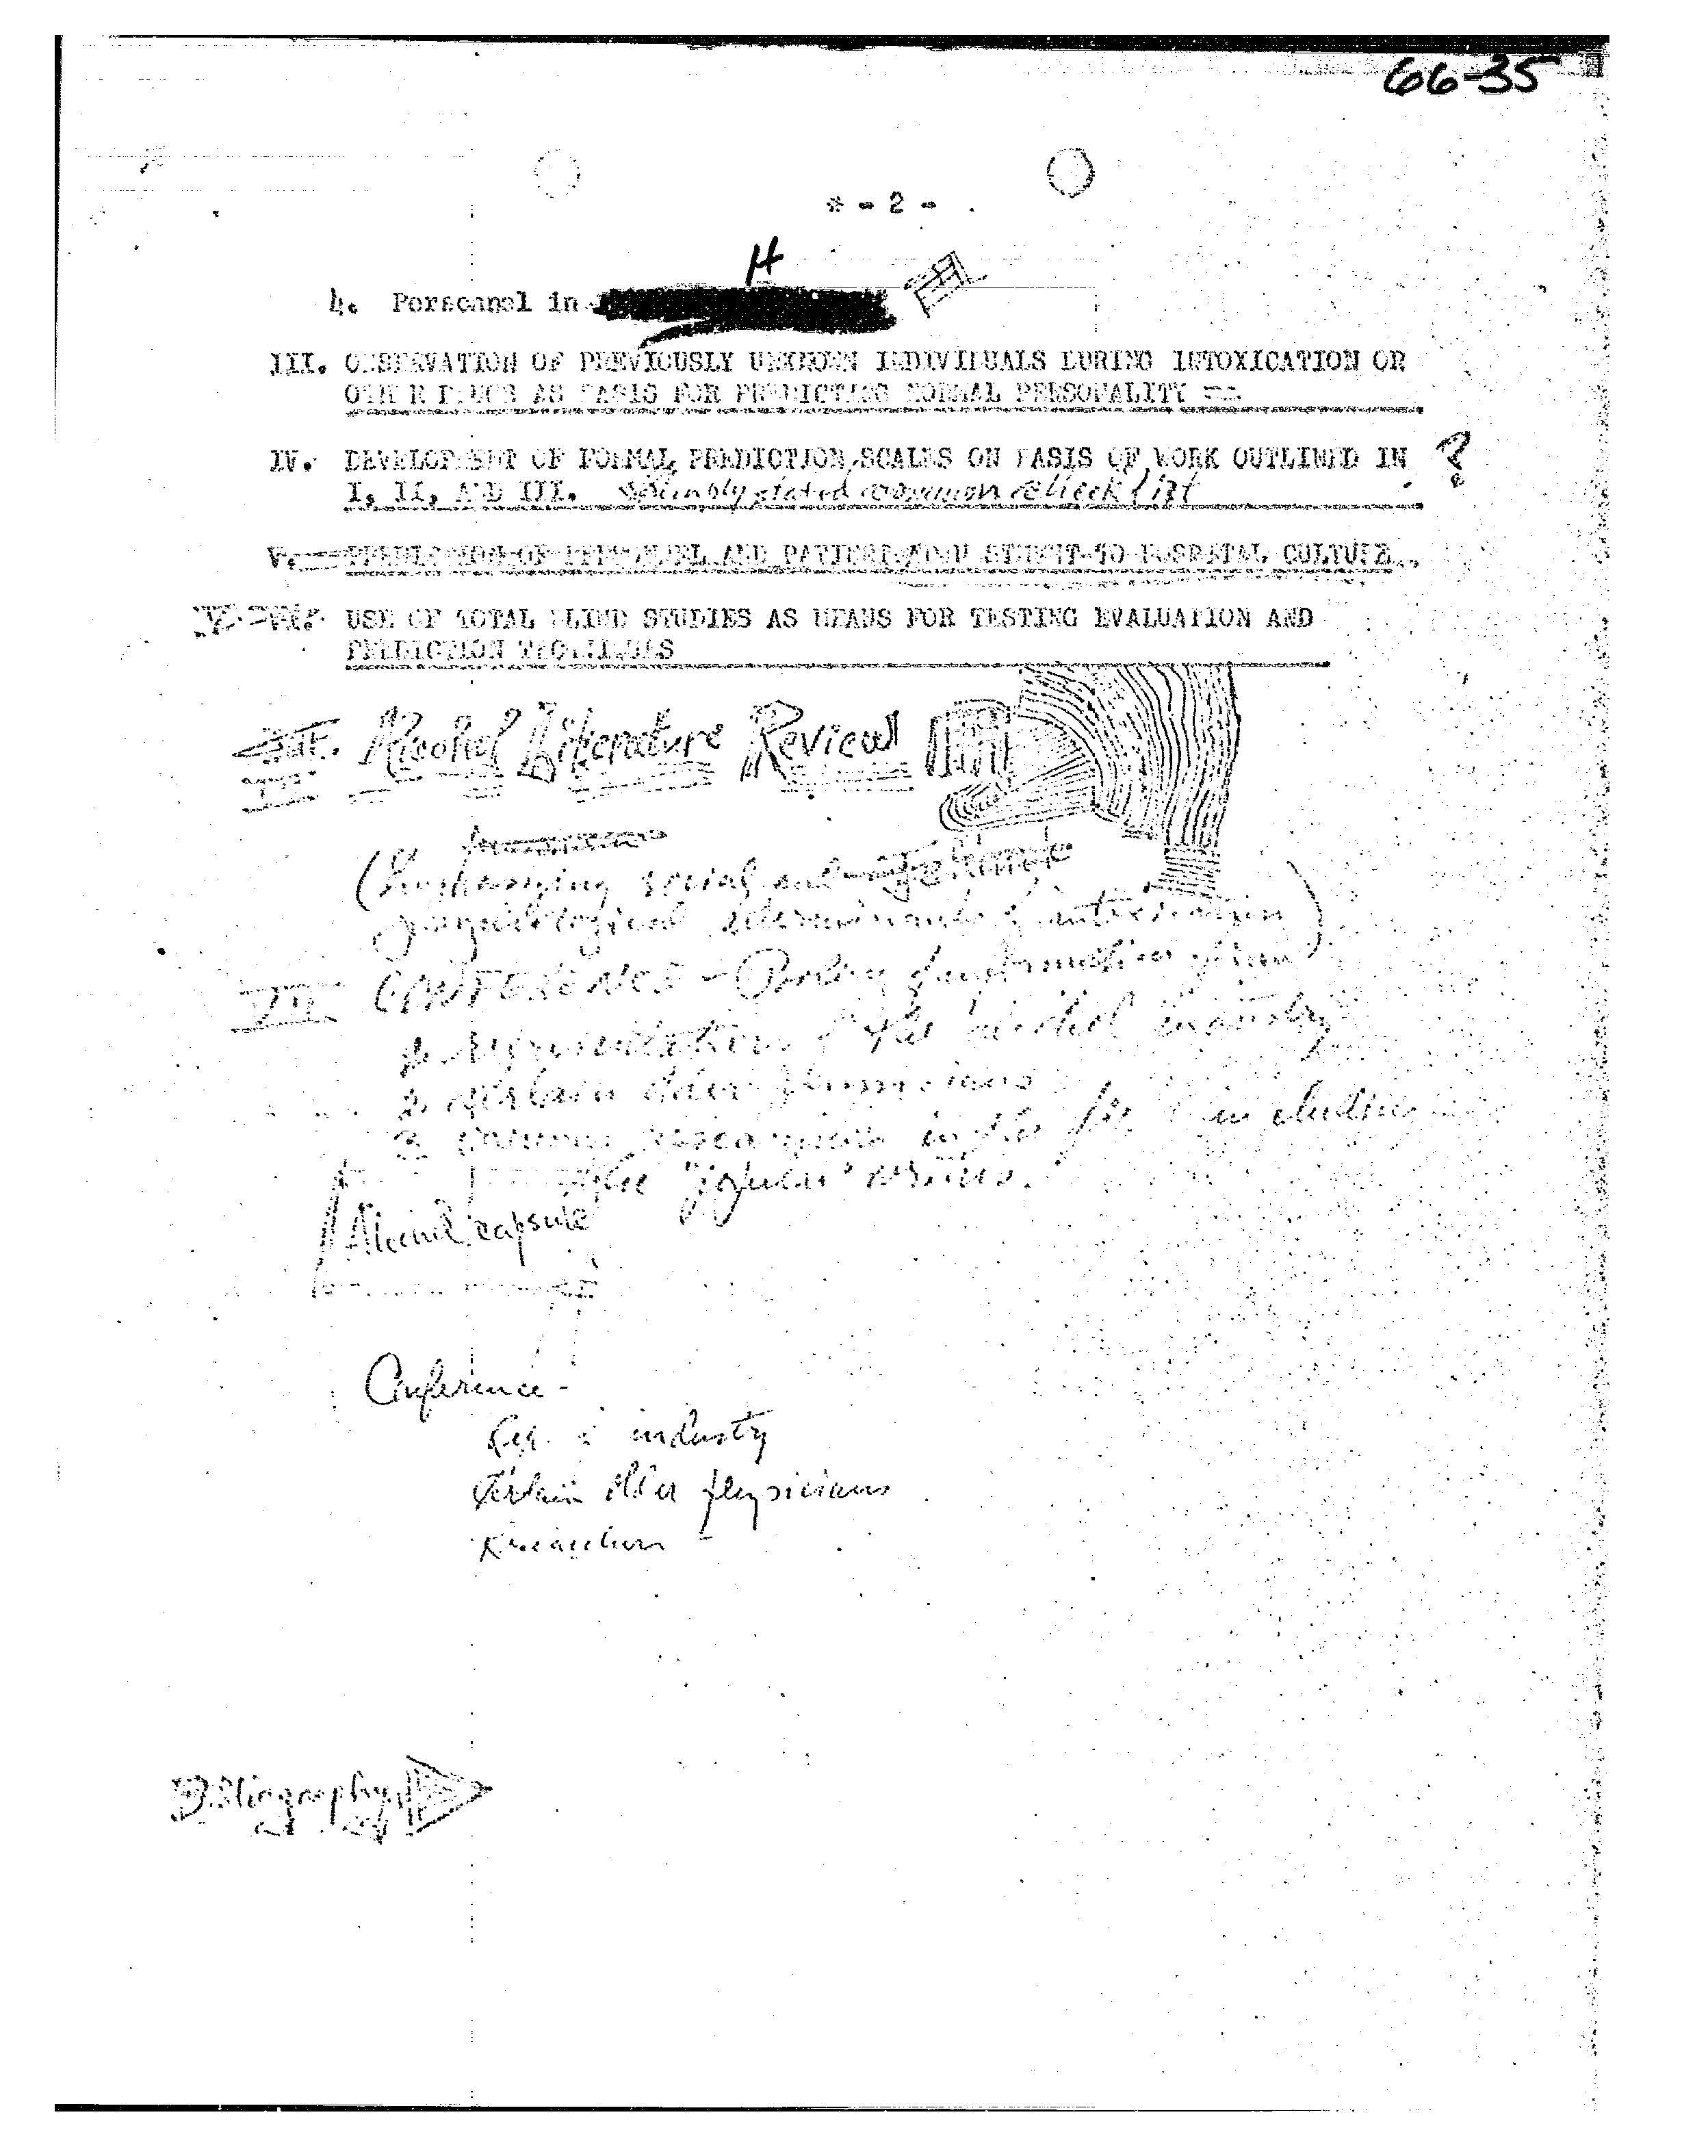 66-35
* - 2 -
H
4. Personnel in
III. OBSERVATION OF PREVIOUSLY UNKNOWN INDIVIDUALS DURING INTOXICATION OR
OTHER DRUGS AS BASIS FOR PREDICTING NORMAL PERSONALITY
IV. DEVELOPMENT OF FORMAL PREDICTION SCALES ON BASIS OF WORK OUTLINED IN ?
I, II, AND III. Simply stated common check list
V. PREDICTION OF PERSONNEL AND PATIENT TO HOSPITAL CULTURE
V. VI. USE OF TOTAL BLIND STUDIES AS MEANS FOR TESTING EVALUATION AND
PREDICTION TECHNIQUES
Alcohol Literature Review
(Emphasizing social and
psychological determinants of intoxication)
VII CONFERENCE - Policy formation
1. representatives of the alcohol industry
2. certain older physicians
3. in the including
the "popular" writers.
Alcohol capsule
Conference -
Rep. industry
Certain older physicians
Researchers -
Bibliography